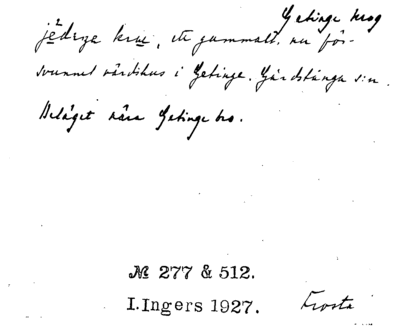 Getinge krog
jẹ̀drze krue, ett gammalt, nu för-
svunnet värdshus i Getinge. Gårdstånga s:n.
Beläget nära Getinge bro.
№ 277 & 512.
I. Ingers 1927.
Frosta